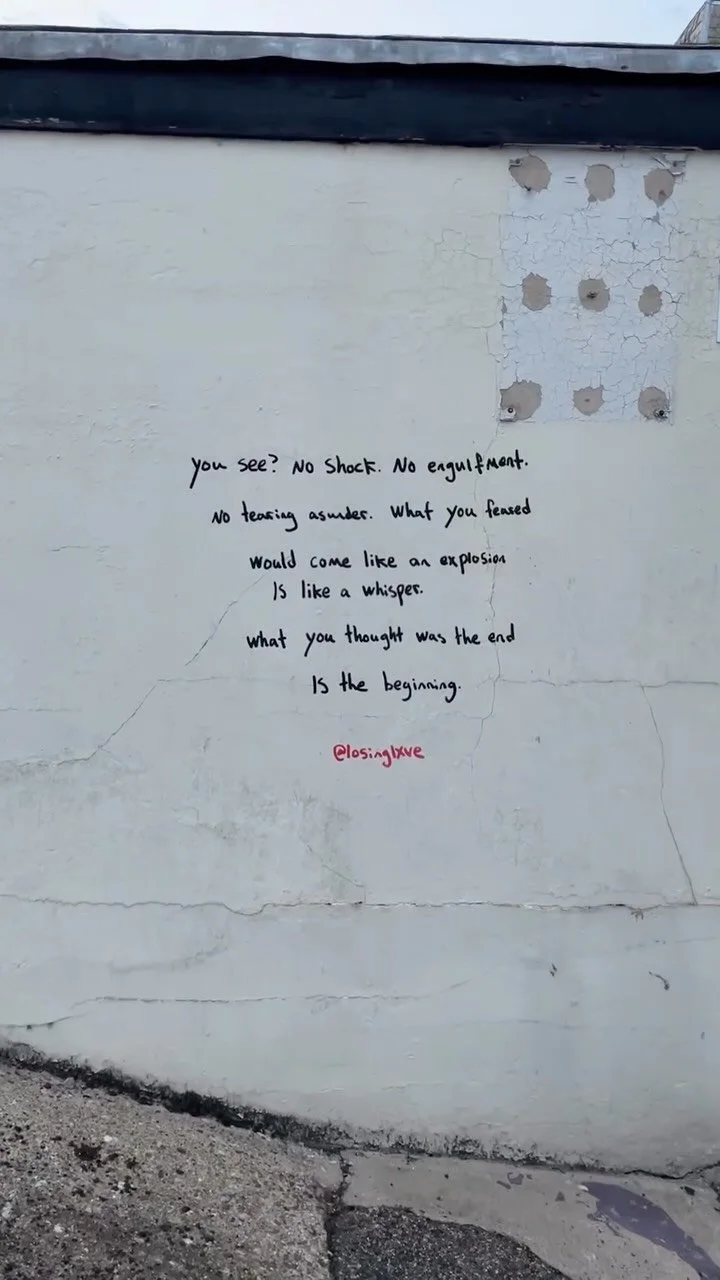 you see? No Shock. No engulfment.
No tearing asunder. What you feared
would come like an explosion
Is like a whisper.
what you thought was the end
Is the beginning.
@losinglxve